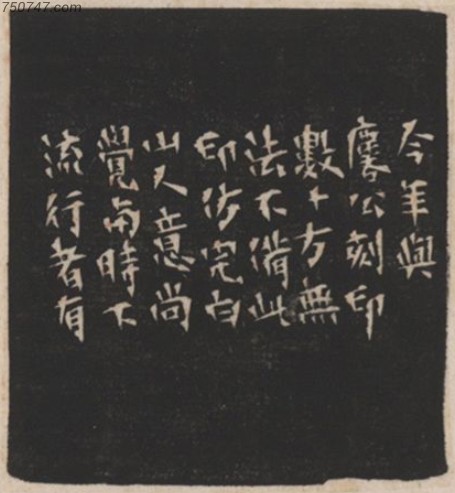 750747.com
今年與
麐公刻印
數十方無
法不備此
印仿完白
山人意尚
覺與時下
流行者有